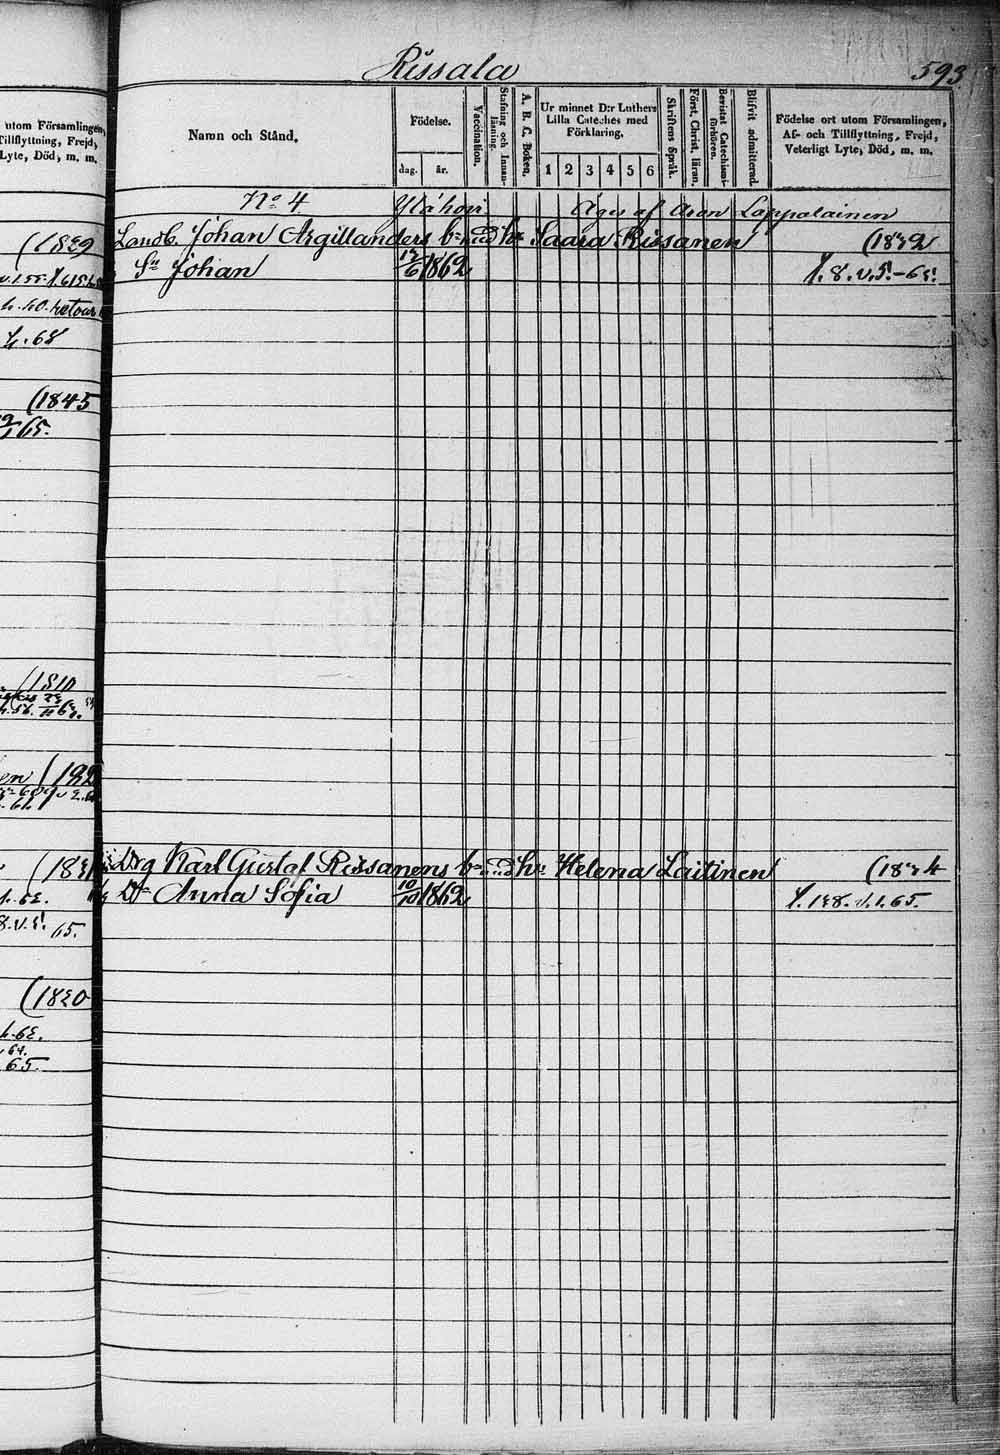 Rissala 593
utom Församlingen,
Tillflyttning, Frejd,
Lyte, Död, m. m.
Namn och Stånd.
Födelse.
dag. år.
Vaccination.
Stafning och Innan-läsning.
A. B. C. Boken.
Ur minnet D:r Luthers
Lilla Catechés med
Förklaring.
1 2 3 4 5 6
Skriftens Språk.
Först. Christ. läran.
Bevistat Catechismi-förhören.
Blifvit admitterad.
Födelse ort utom Församlingen,
Af- och Tillflyttning, Frejd,
Veterligt Lyte, Död, m. m.
No 4 Ylä hovi Äges af Aron Lappalainen
Landb. Johan Argillanders hu Saara Rissanen (1832
Sn Johan 12/6 1862 f. 8. v. 5.-65.
(1839
h. 40. retour
h. 68
(1845
65.
(1810
en (182
Drg Karl Gustaf Rissanens hu Helena Laitinen (1834
Dr Anna Sofia 10/10 1862 f. 138. v. 1. 65.
65.
(1830
h. 63.
64.
65.